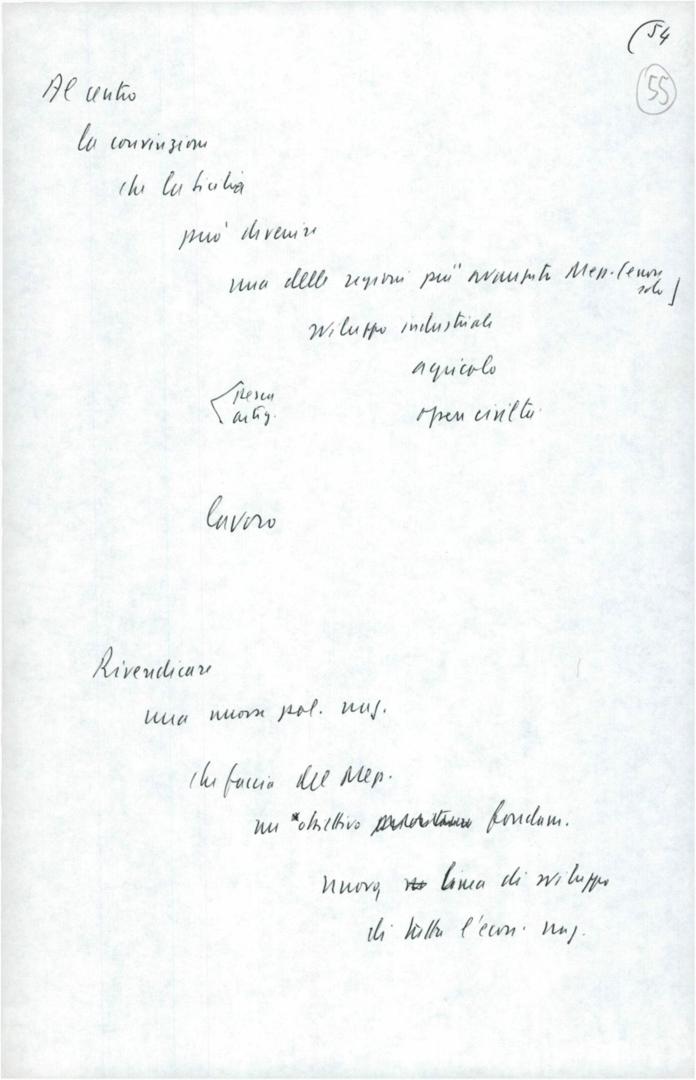 (54
55
Al centro
la convinzione
che la Sicilia
può divenire
una delle regioni più avanzate Mezz. (e non
solo)
sviluppo industriale
agricolo
pesca
artig.
open civiltà
lavoro
Rivendicare
una nuova pol. naz.
che faccia del Mezz.
un obiettivo fondam.
nuova linea di sviluppo
di tutta l'econ. naz.